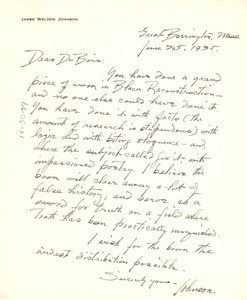 JAMES WELDON JOHNSON
Great Barrington, Mass.
June 25, 1935.
Dear Du Bois:
You have done a grand
piece of work in Black Reconstruction—
and no one else could have done it.
You have done it with facts (the
amount of research is stupendous) with
logic and with biting eloquence - and
where the subject called for it, with
impassioned poetry. I believe the
book will clear away a lot of
false history, and serve as a
sword for truth on a field where
Truth has been practically vanquished.
I wish for the book the
widest distribution possible.
Sincerely yours -
Johnson.